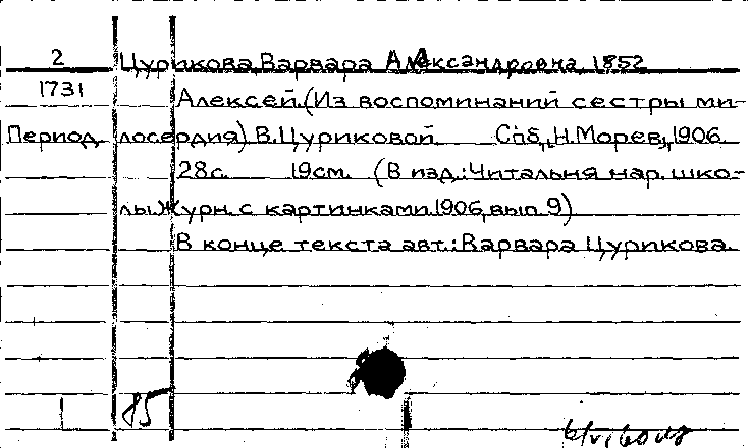 2 Цурикова, Варвара Александровна, 1852
1731 Алексей. (Из воспоминаний сестры ми-
Период. лосердия) В. Цуриковой. Спб., Н. Морев, 1906.
28с. 19см. (В изд.: Читальня нар. шко-
лы. Журн. с картинками. 1906, вып. 9)
В конце текста авт.: Варвара Цурикова.
85